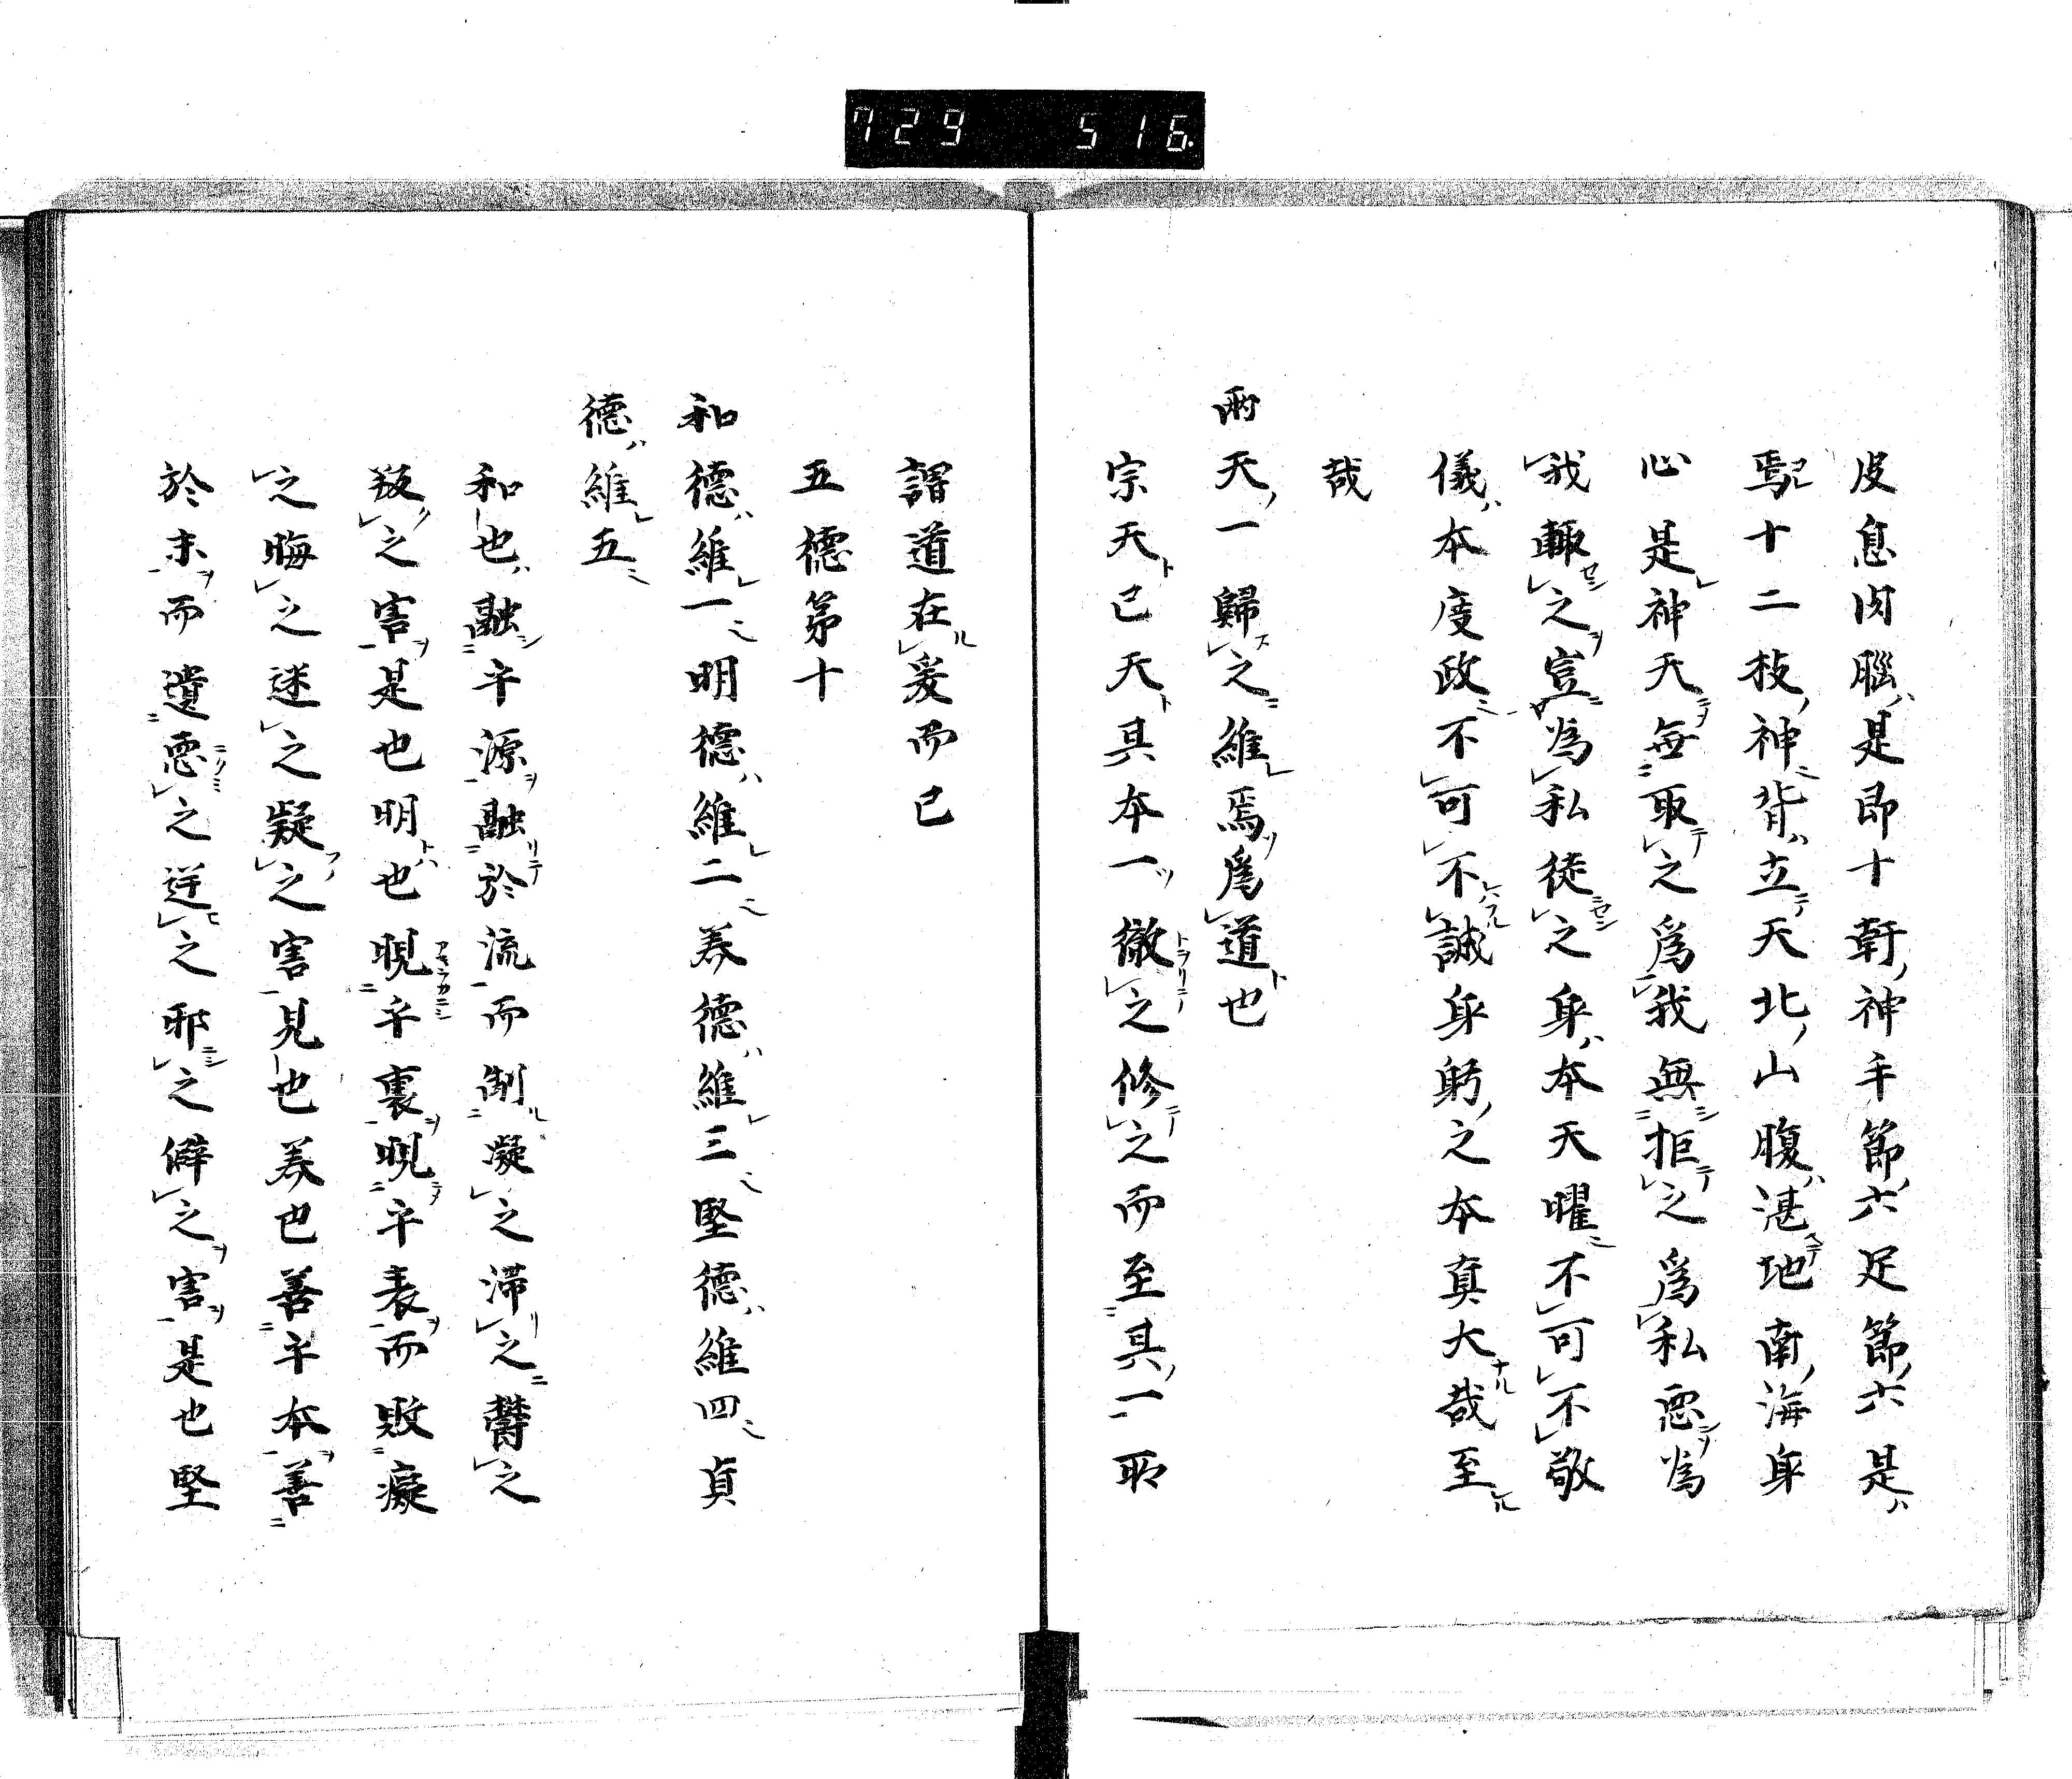 729 516.
皮息肉腦是即十幹神手節六足節六是
焉十二枝神背立天北山腹湛地南海身
心是神天無取之爲我無拒之爲私惡爲
我輙之豈爲私徒之身本天曜不可不敬
儀本度政不可不誠身躬之本眞大哉至
哉
兩天一歸之維焉爲道也
宗天已天其本一徹之修之而至其一所
謂道在爰而已
五德第十
和德維一明德維二養德維三堅德維四貞
德維五
和也融乎源融於流而制凝之滯之鬱之
叛之害是也明也晛乎裏晛乎表而敗癡
之晦之迷之疑之害見也養也善乎本善
於末而遺惡之逆之邪之僻之害是也堅